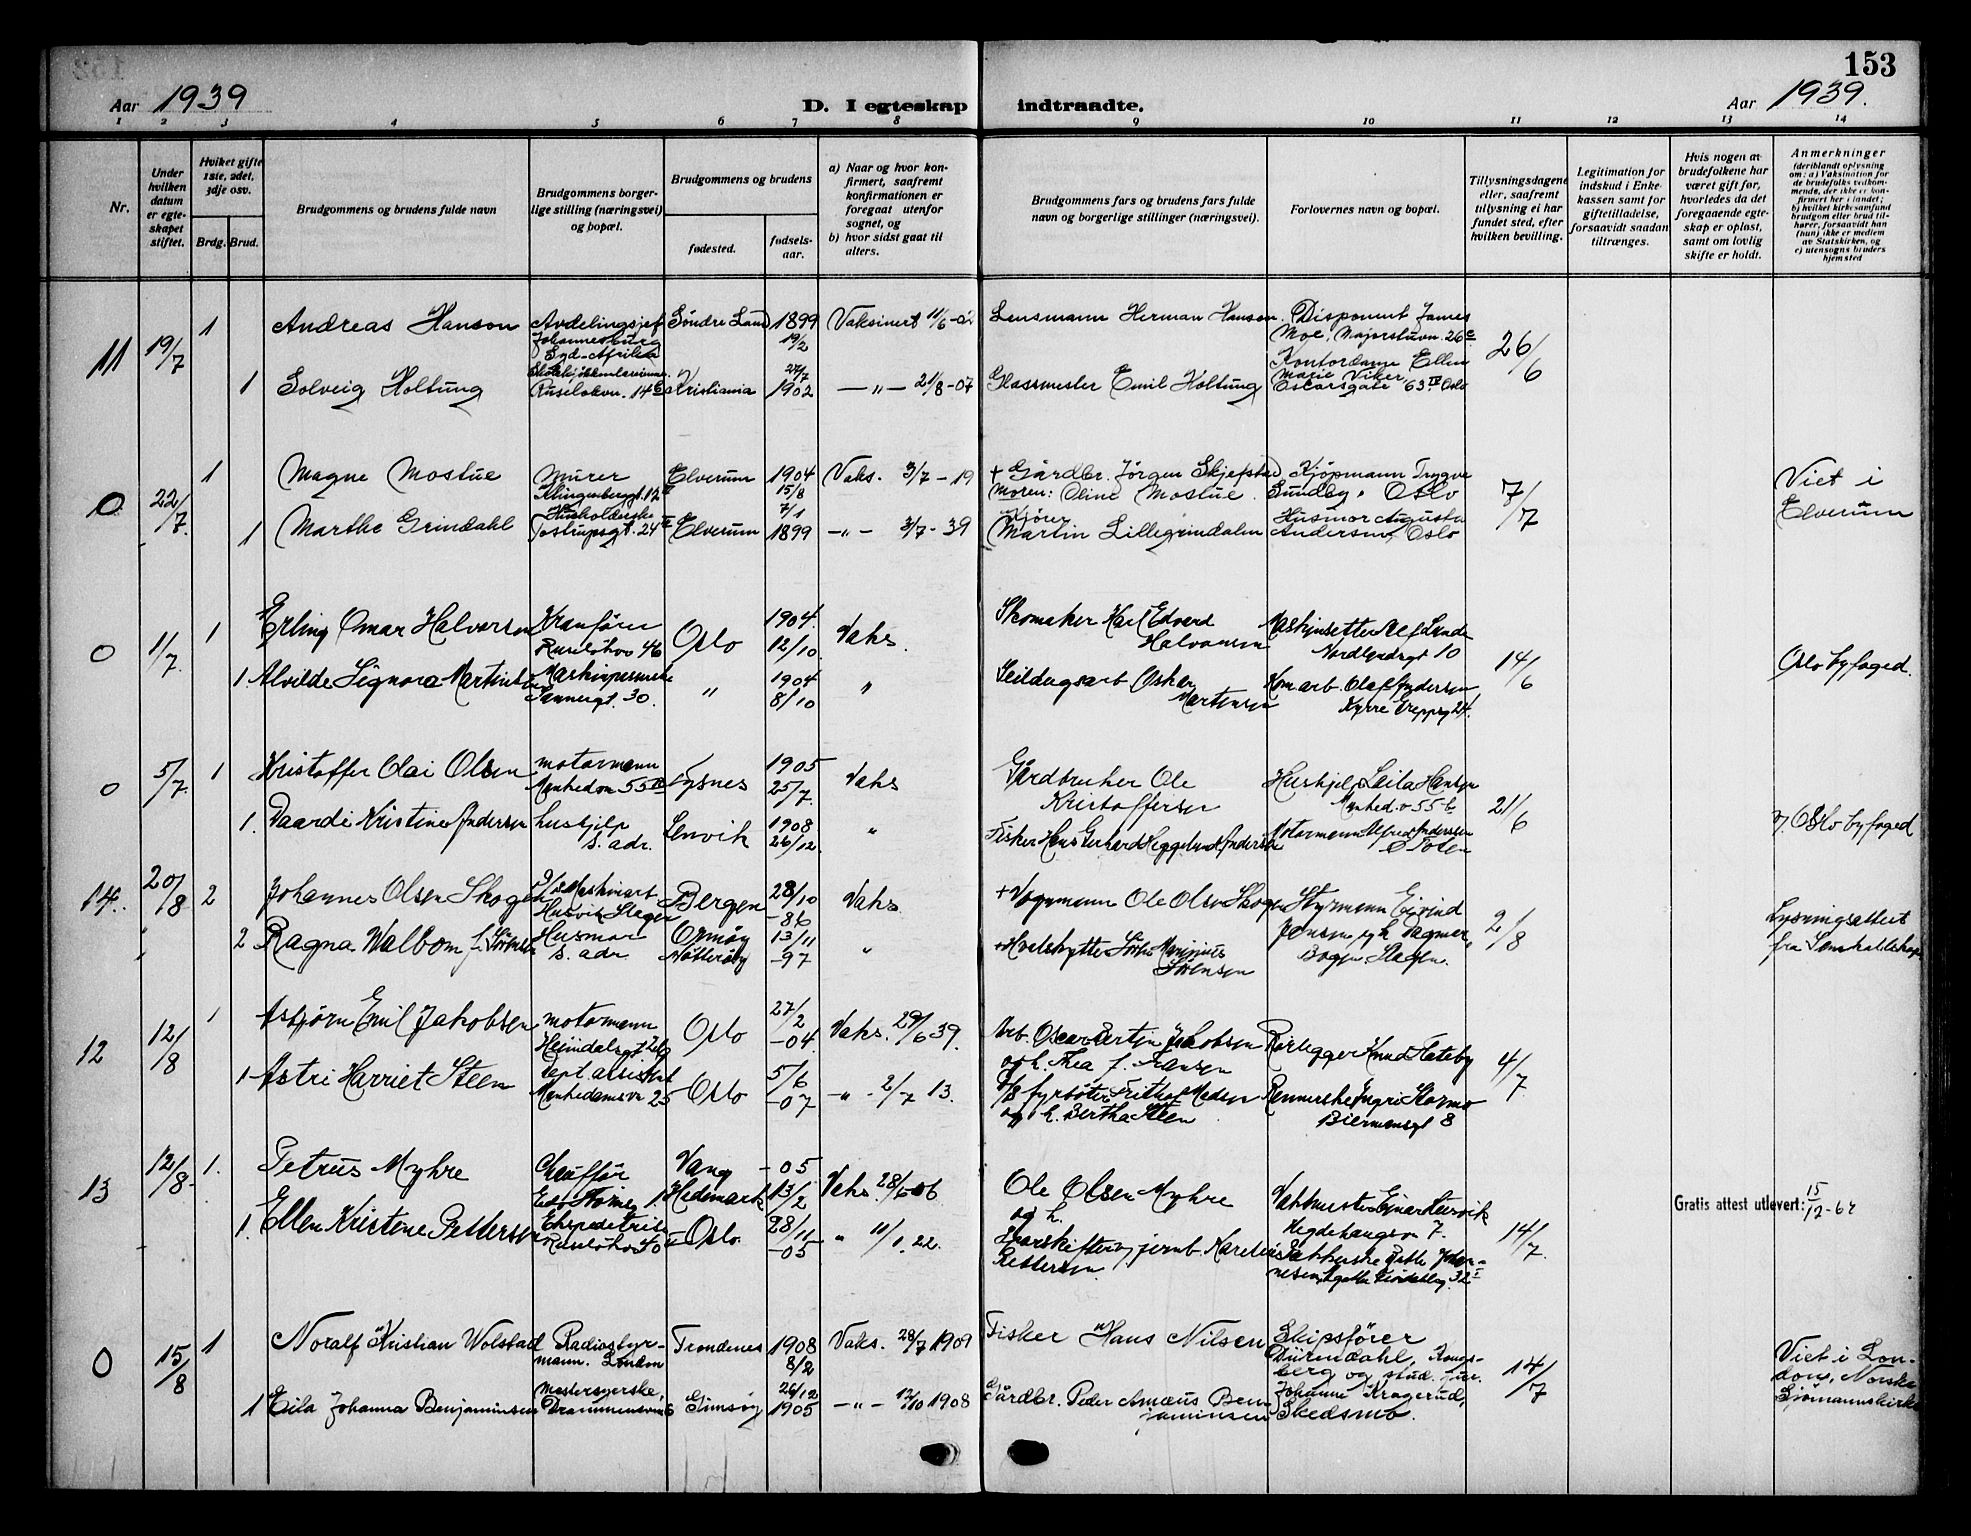 153
Aar 1939
D. I egteskap indtraadte.
Aar 1939.
1 2 3 4 5 6 7 8 9 10 11 12 13 14
Nr.
Under hvilken datum er egteskapet stiftet.
Hvilket gifte 1ste, 2det, 3dje osv.
Brdg. Brud.
Brudgommens og brudens fulde navn
Brudgommens borgerlige stilling (næringsvei) og bopæl.
Brudgommens og brudens
fødested.
fødselsaar.
a) Naar og hvor konfirmert, saafremt konfirmationen er foregaat utenfor sognet, og
b) hvor sidst gaat til alters.
Brudgommens fars og brudens fars fulde navn og borgerlige stillinger (næringsvei).
Forlovernes navn og bopæl.
Tillysningsdagene eller, saafremt tillysning ei har fundet sted, efter hvilken bevilling.
Legitimation for indskud i Enkekassen samt for giftetilladelse, forsaavidt saadan tiltrænges.
Hvis nogen av brudefolkene har været gift før, hvorledes da det foregaaende egteskap er opløst, samt om lovlig skifte er holdt.
Anmerkninger (deriblandt oplysning om: a) Vaksination for de brudefolks vedkommende, der ikke er konfirmert her i landet; b) hvilket kirkesamfund brudgom eller brud tilhører, forsaavidt han (hun) ikke er medlem av Statskirken, og c) utensogns bruders hjemsted
11 19/7 1 Andreas Hanson Avdelingsjef Johannesburg Syd-Afrika Søndre Land 1899 19/2 Vaksinert 11/6-02 Lensmann Herman Hanson. Disponent James Moe, Majorstuvn. 26 c 26/6
1 Solveig Holtung Ruseløkvn. 14 Kristiania 27/7 1902 — " — 21/8-07 Glassmester Emil Holtung Kontordame Ellen Marie Viker Oscarsgate 63 IV Oslo
0 22/7. 1 Magne Mostue Murer Klingenberggt. 12 Elverum 1904 15/8 Vaks. 3/7-19 + Gårdbr. Jørgen Skjefstad Moren: Oline Mostue. Kjøpmann Trygve Sundby, Oslo 7/7 Viet i Elverum
1 Marthe Grindahl Husholderske Tostrupsgt. 24 Elverum 7/1 1899 — " — 3/7-39 Kjører Martin Lillegrindalen Husmor Augusta Andersen, Oslo
0 1/7. 1 Erling Omar Halvorsen Kranfører Ruseløkvn 46 Oslo 1904. 12/10. Vaks. Skomaker Karl Edvard Halvorsen Maskinsetter Alf Lunde Nordlyndsgt 10 14/6 Oslo byfoged.
1. Alvilde Signora Martinsen Sannergt. 30. " 1904 8/10 " Seildugsarb Oskar Martensen Kom arb. Olaf Andersen,
0 5/7. 1 Kristoffer Olai Olsen motormann Munkedvn 55 Tysnes 1905 25/7. Vaks Gårdbruker Ole Kristoffersen Hushjelp Laila Hansen 21/6 Oslo byfoged
1. Kristine Andersen hushjelp s. adr. Lenvik 1908 26/12. " Fisker Hans Gerhard Heggelund Andersen Motormann Alfred Andersen
14. 20/8 2 Johannes Olsen Skogen Maskinarb Husvik Slagen Bergen 28/10 -86 Vaks + Vognmann Ole Olsen Skogen Styrmann Eivind Jensen og h. Dagmar, Bogen. Slagen. 2/8 Lysningsattest
2 Ragna Walbom f. Sørensen Husmor s. adr Ormøy Nøtterøy 13/11 -97 " + Hvalskytter Søren Sørensen
12 12/8 1 Asbjørn Emil Jakobsen motormann Heimdalsgt Oslo 27/2 -04 Vaks. 29/6 39. Arb. Oscar Jakobsen og h. Thea f. Fransen Rørlegger Knud Slateby 4/7.
1 Astri Harriet Steen Munkedamsvn 25 Oslo 5/6 -07 — " — 2/7 13. fyrbøter Frithof Madsen og h. Bertha Steen Biermannsgt 8
13 12/8 1. Petrus Myhre Chauffør Vang Hedemark -05 13/2 Vaks. 28/6-06 Ole Olsen Myhre og h. Vaktmester Einar Hegdehaugsvn 7. 14/7. Gratis attest utlevert: 15/12-64
1. Ellen Kristine Pettersen Ekspeditrise Ruseløkvn 40 Oslo. 28/11 -05 " 11/1.22. Sporskifter v jernb. Karelius Pettersen
0 15/8 1 Noralf Kristian Wolstad Radiostyrmann. London Trondenes 1908 8/2 Vaks. 28/7 1909 Fisker Hans Nilsen Skipsfører Dürendahl, Kongsberg og stud. jur. Johanne Kragerud, Skedsmo. 14/7 Viet i London, Norske Sjømannskirke
1 Eila Johanna Benjaminsen Mostersyerske, Drammensvn 6 Gimsøy 26/12 1905 — " — 12/10 1908 Gårdbr. Peder Amæus Benjaminsen